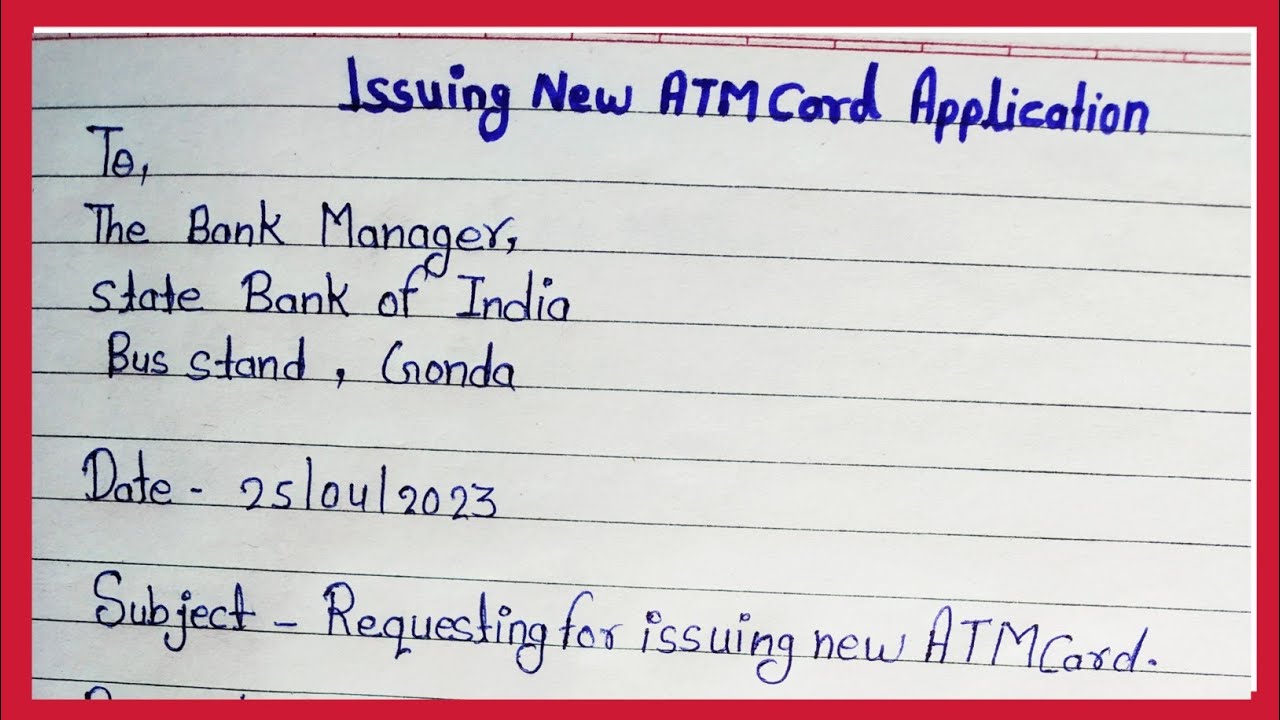 Issuing New ATM Card Application
To,
The Bank Manager,
state Bank of India
Bus stand, Gonda
Date - 25/04/2023
Subject - Requesting for issuing new ATM Card.